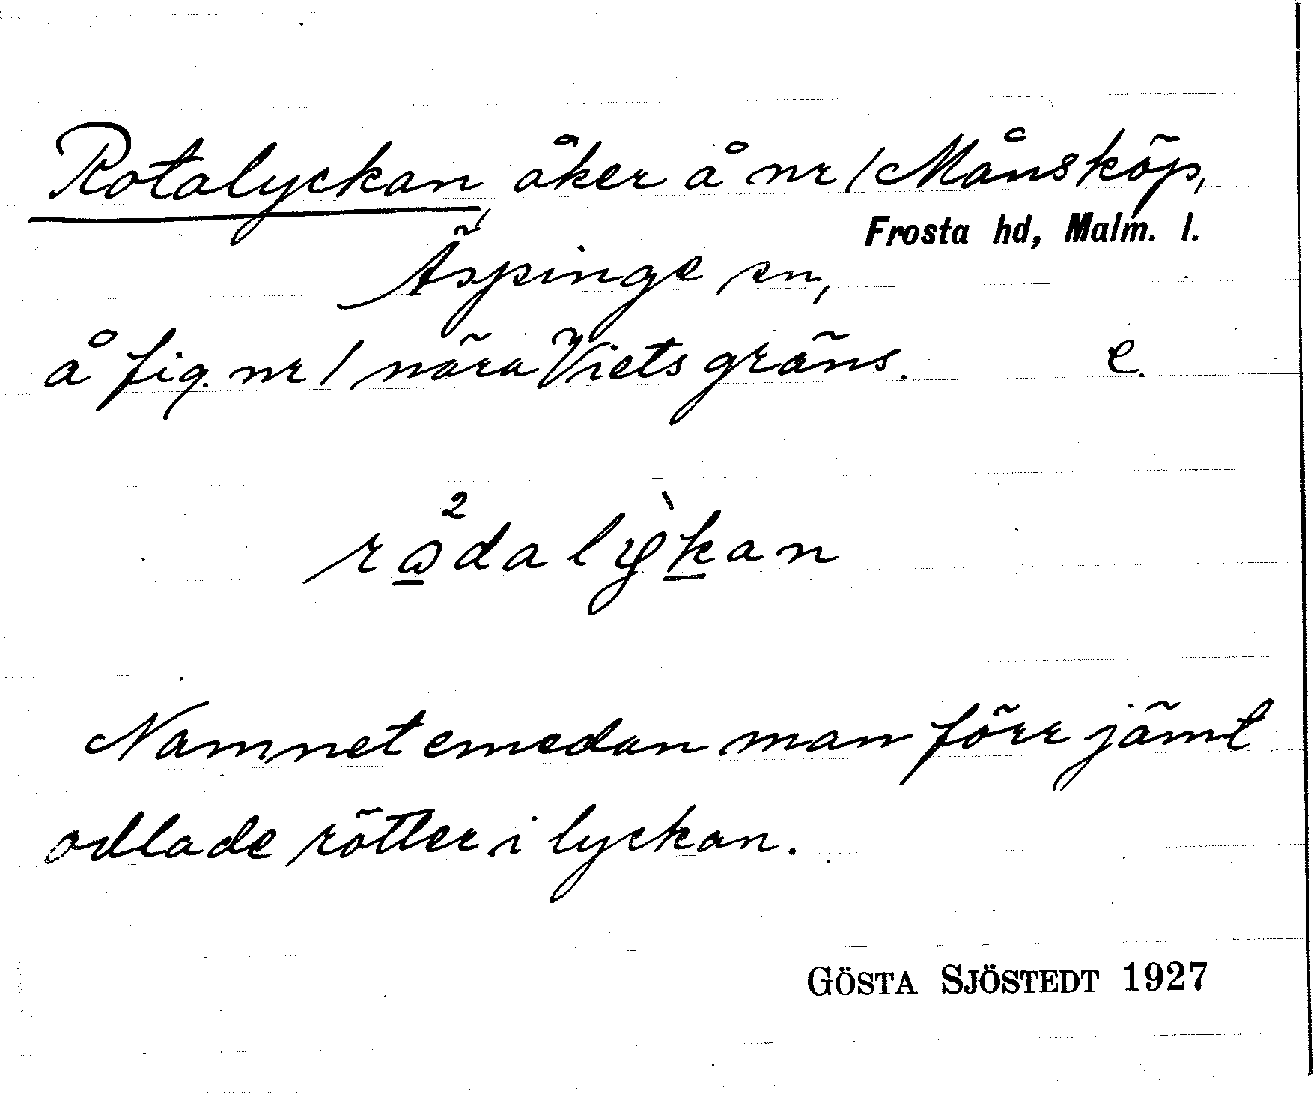 Rotalyckan, åker å nr 1 Månsköp,
Frosta hd, Malm. l.
Äspinge sn,
å fig. nr 1 nära Viets gräns. e.
rodalykan
Namnet emedan man förr jämt
odlade rötter i lyckan.
GÖSTA SJÖSTEDT 1927